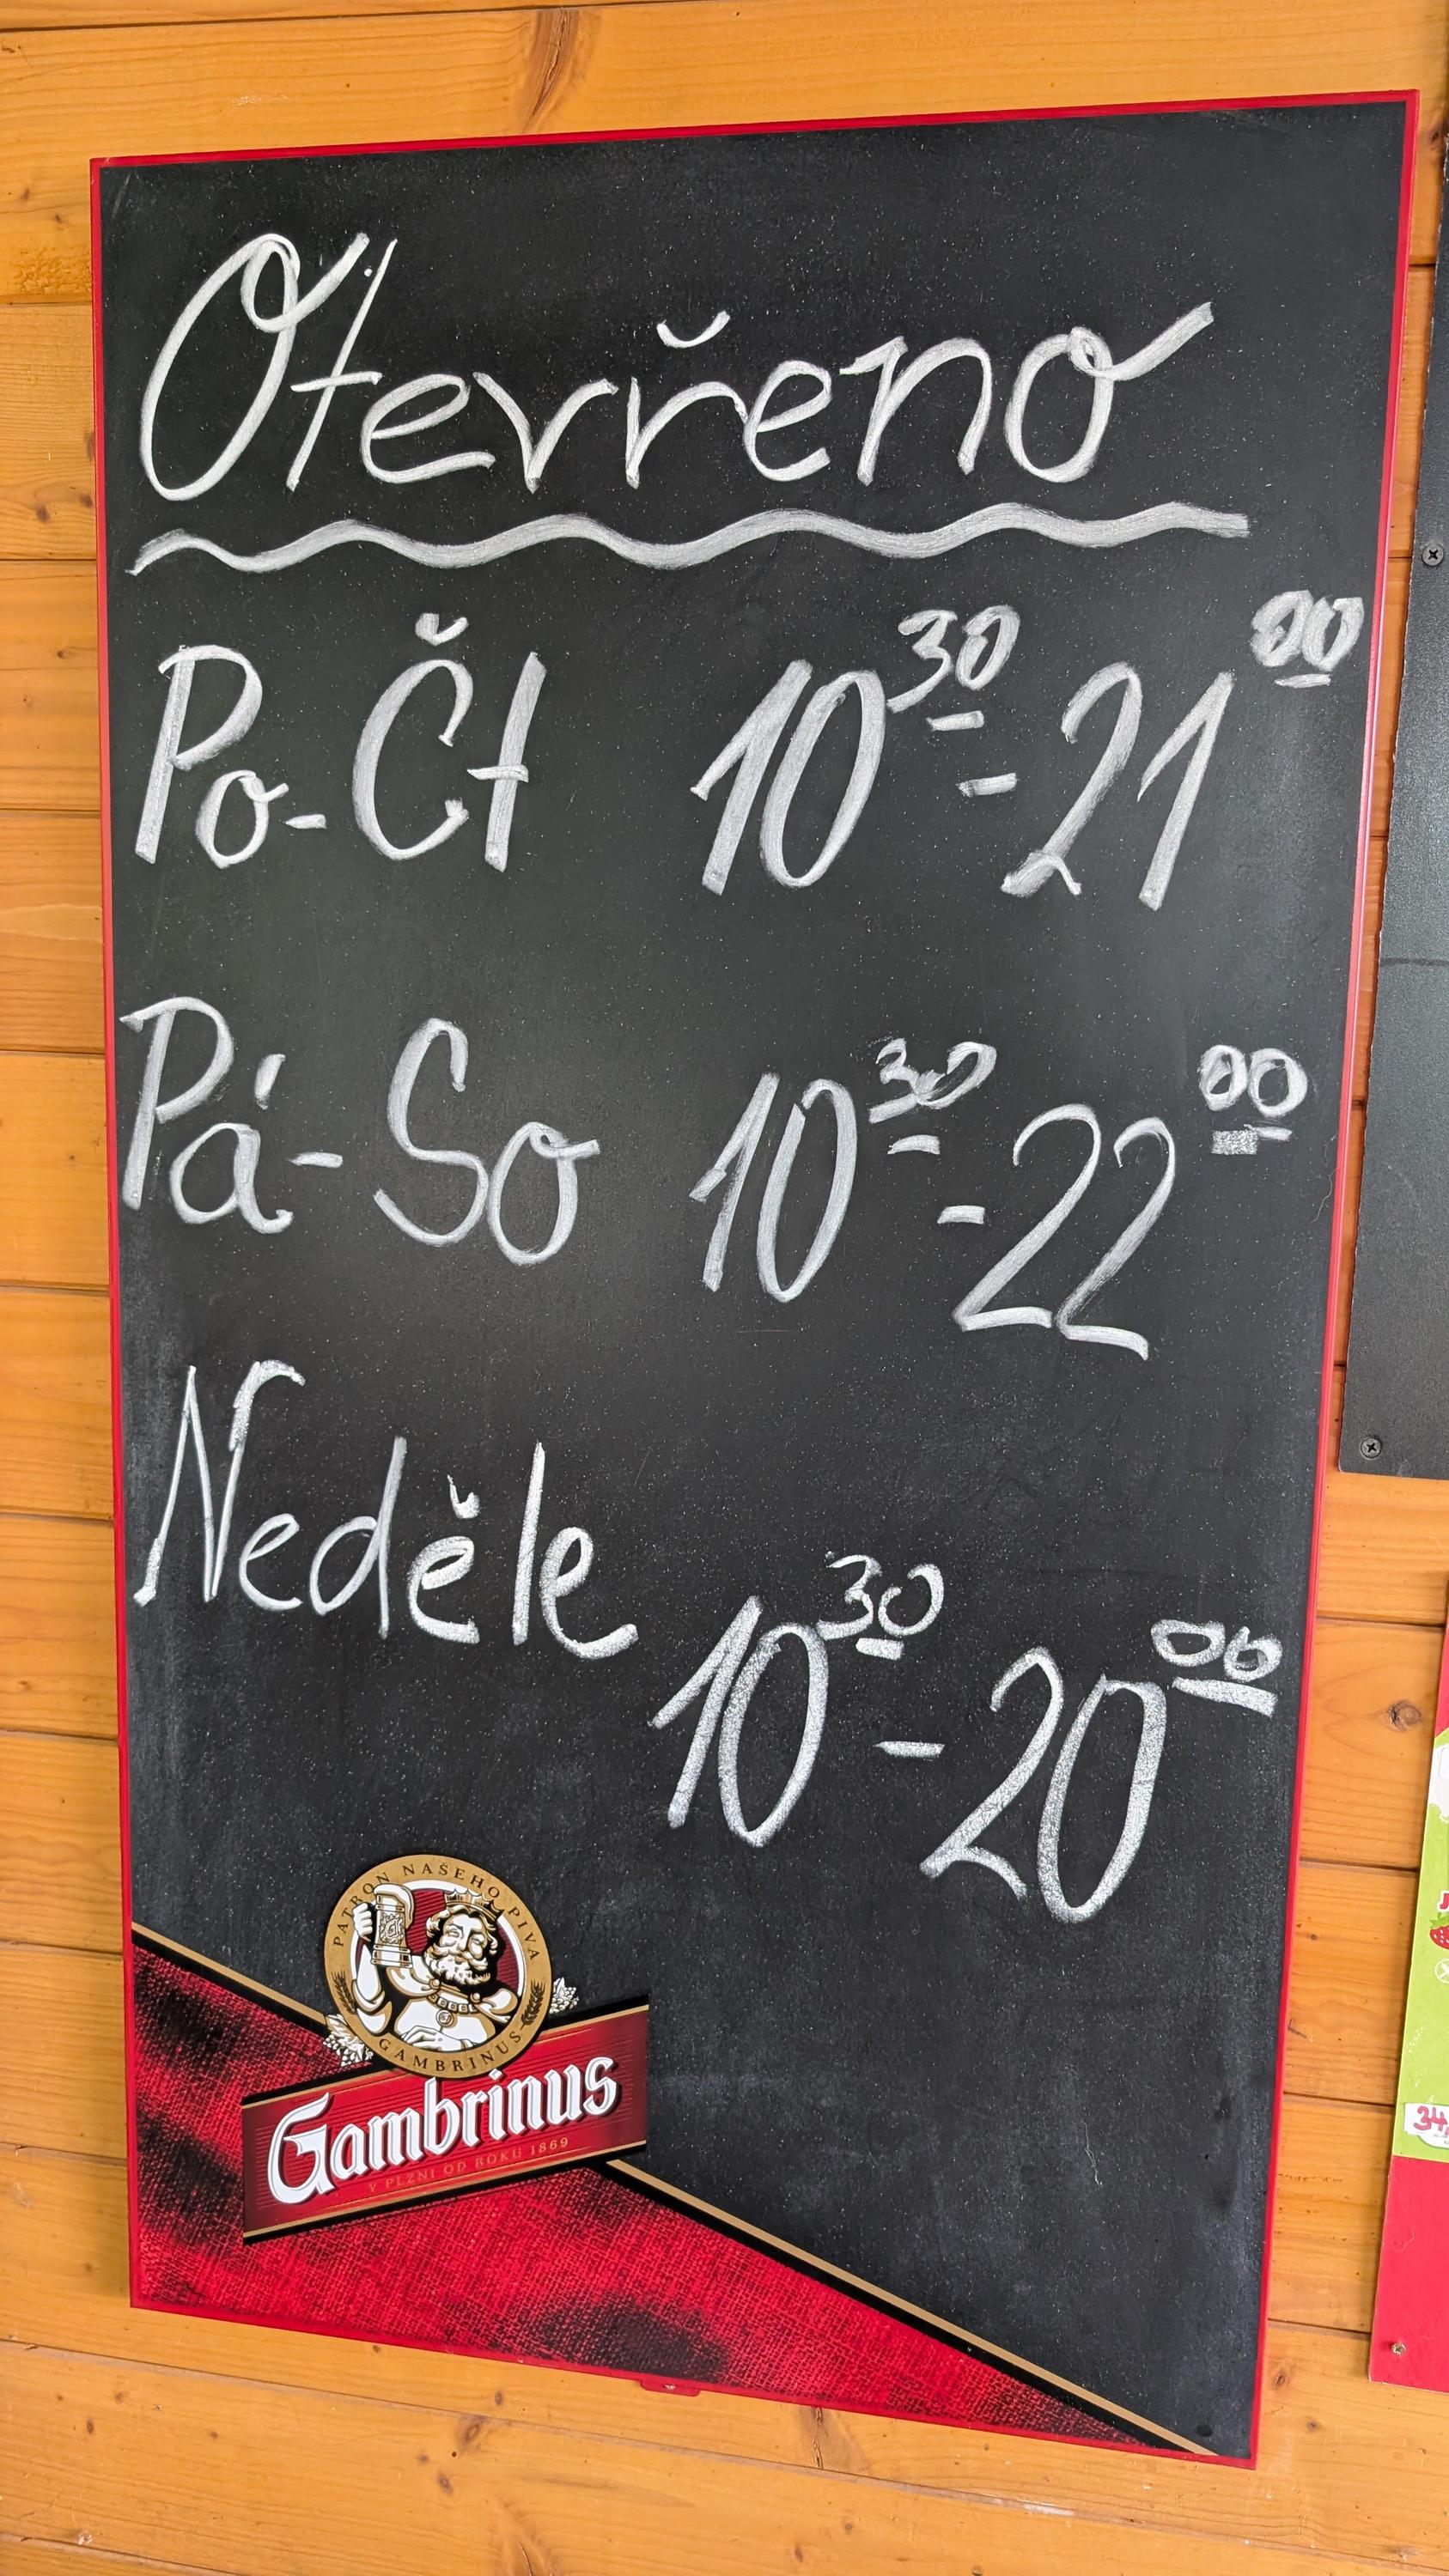 Otevřeno
Po-Čt 10³⁰-21⁰⁰
Pá-So 10³⁰-22⁰⁰
Neděle
10³⁰-20⁰⁰
PATRON NAŠEHO PIVA
GAMBRINUS
Gambrinus
V PLZNI OD ROKU 1869
34